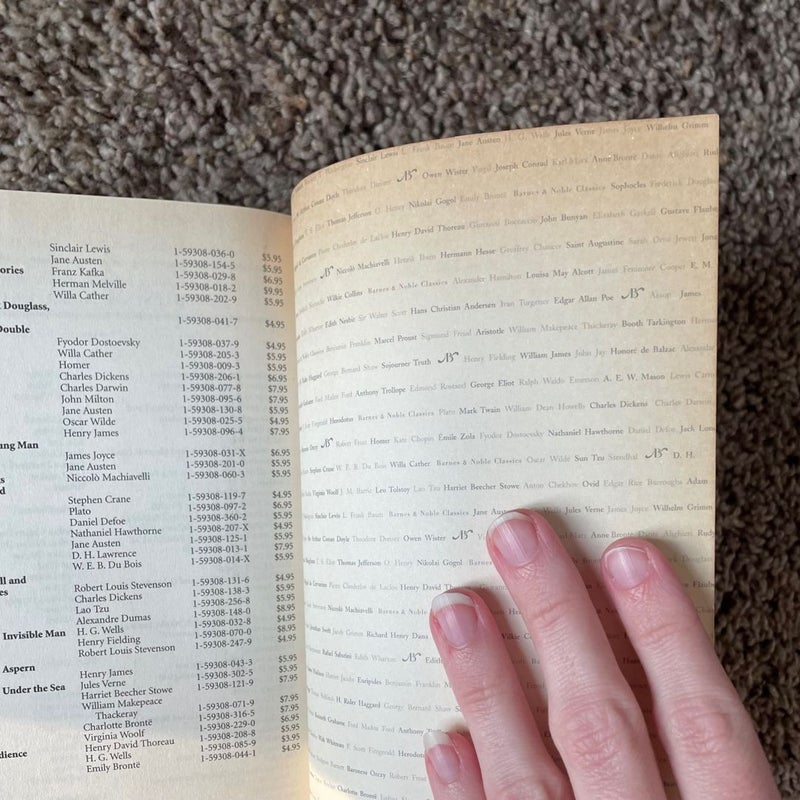 Sinclair Lewis 1-59308-036-0 $5.95
Jane Austen 1-59308-154-5 $5.95
ories Franz Kafka 1-59308-029-8 $6.95
Herman Melville 1-59308-018-2 $9.95
Willa Cather 1-59308-202-9 $5.95
Douglass,
1-59308-041-7 $4.95
Double
Fyodor Dostoevsky 1-59308-037-9 $4.95
Willa Cather 1-59308-205-3 $5.95
Homer 1-59308-009-3 $5.95
Charles Dickens 1-59308-206-1 $6.95
Charles Darwin 1-59308-077-8 $7.95
John Milton 1-59308-095-6 $7.95
Jane Austen 1-59308-130-8 $5.95
Oscar Wilde 1-59308-025-5 $4.95
Henry James 1-59308-096-4 $7.95
ung Man
James Joyce 1-59308-031-X $6.95
Jane Austen 1-59308-201-0 $5.95
Niccolò Machiavelli 1-59308-060-3 $5.95
d
Stephen Crane 1-59308-119-7 $4.95
Plato 1-59308-097-2 $6.95
Daniel Defoe 1-59308-360-2 $5.95
Nathaniel Hawthorne 1-59308-207-X $4.95
Jane Austen 1-59308-125-1 $5.95
D. H. Lawrence 1-59308-013-1 $7.95
W. E. B. Du Bois 1-59308-014-X $5.95
ll and
es Robert Louis Stevenson 1-59308-131-6 $4.95
Charles Dickens 1-59308-138-3 $5.95
Lao Tzu 1-59308-256-8 $5.95
Alexandre Dumas 1-59308-148-0 $8.95
Invisible Man H. G. Wells 1-59308-032-8 $4.95
Henry Fielding 1-59308-070-0 $8.95
Robert Louis Stevenson 1-59308-247-9 $4.95
Aspern Henry James 1-59308-043-3 $5.95
Under the Sea Jules Verne 1-59308-302-5 $5.95
Harriet Beecher Stowe 1-59308-121-9 $7.95
William Makepeace
Thackeray 1-59308-071-9 $7.95
Charlotte Brontë 1-59308-316-5 $7.95
Virginia Woolf 1-59308-229-0 $6.95
dience Henry David Thoreau 1-59308-208-8 $5.95
H. G. Wells 1-59308-085-9 $3.95
Emily Brontë 1-59308-044-1 $4.95
Sinclair Lewis L. Frank Baum Jane Austen H. G. Wells Jules Verne James Joyce Wilhelm Grimm
Conan Doyle Theodore Dreiser Owen Wister Virgil Joseph Conrad Karl Marx Anne Brontë Dante Alighieri
T. S. Eliot Thomas Jefferson O. Henry Nikolai Gogol Emily Brontë Barnes & Noble Classics Sophocles Frederick Douglass
Pierre Choderlos de Laclos Henry David Thoreau Giovanni Boccaccio John Bunyan Elizabeth Gaskell Gustave
Niccolò Machiavelli Henrik Ibsen Hermann Hesse Geoffrey Chaucer Saint Augustine Sarah Orne Jewett
Wilkie Collins Barnes & Noble Classics Alexander Hamilton Louisa May Alcott James Fenimore Cooper E. M.
Edith Nesbit Sir Walter Scott Hans Christian Andersen Ivan Turgenev Edgar Allan Poe Aesop James
Benjamin Franklin Marcel Proust Sigmund Freud Aristotle William Makepeace Thackeray Booth Tarkington
Haggard George Bernard Shaw Sojourner Truth Henry Fielding William James John Jay Honoré de Balzac
Ford Madox Ford Anthony Trollope Edmond Rostand George Eliot Ralph Waldo Emerson A. E. W. Mason Lewis
Herodotus Barnes & Noble Classics Plato Mark Twain William Dean Howells Charles Dickens Charles Darwin
Robert Frost Homer Kate Chopin Emile Zola Fyodor Dostoevsky Nathaniel Hawthorne Daniel Defoe Jack
Stephen Crane W. E. B. Du Bois Willa Cather Barnes & Noble Classics Oscar Wilde Sun Tzu Stendhal D. H.
Virginia Woolf J. M. Barrie Leo Tolstoy Lao Tzu Harriet Beecher Stowe Anton Chekhov Ovid Edgar Rice Burroughs Adam
Sinclair Lewis L. Frank Baum Barnes & Noble Classics Jane Wells Jules Verne James Joyce Wilhelm Grimm
Conan Doyle Theodore Dreiser Owen Wister Marx Anne Brontë Dante Alighieri
T. S. Eliot Thomas Jefferson O. Henry Nikolai Gogol Barnes
Pierre Choderlos de Laclos Henry David
Niccolò Machiavelli Barnes & Noble
Jacob Grimm Richard Henry Dana Wilkie
Rafael Sabatini Edith Wharton
Euripides Benjamin Franklin
H. Rider Haggard George Bernard Shaw
Kenneth Grahame Ford Madox Ford
Walt Whitman F. Scott Fitzgerald
Baroness Orczy Robert Frost
Charlotte Brontë